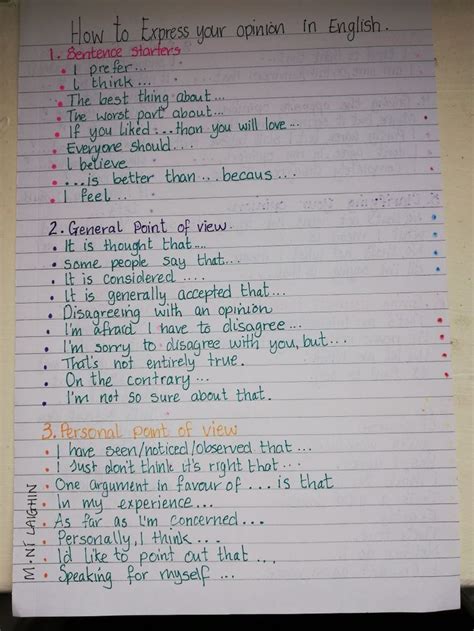 How to Express your opinion in English.
1. Sentence starters
• I prefer...
• I think...
• The best thing about...
• The worst part about...
• If you liked ... than you will love...
• Everyone should...
• I believe
• ...is better than ... becaus...
• I feel...
2. General Point of view.
• It is thought that...
• Some people say that...
• It is considered ....
• It is generally accepted that...
• Disagreeing with an opinion
• I'm afraid I have to disagree...
• I'm sorry to disagree with you, but...
• That's not entirely true.
• On the contrary...
• I'm not so sure about that.
3. Personal point of view
• I have seen/noticed/observed that ...
• I Just don't think it's right that...
• One argument in favour of ... is that
• In my experience...
• As far as I'm concerned...
• Personally, I think ...
• I'd like to point out that ...
• Speaking for myself ...
M. NÍ LAIGHIN